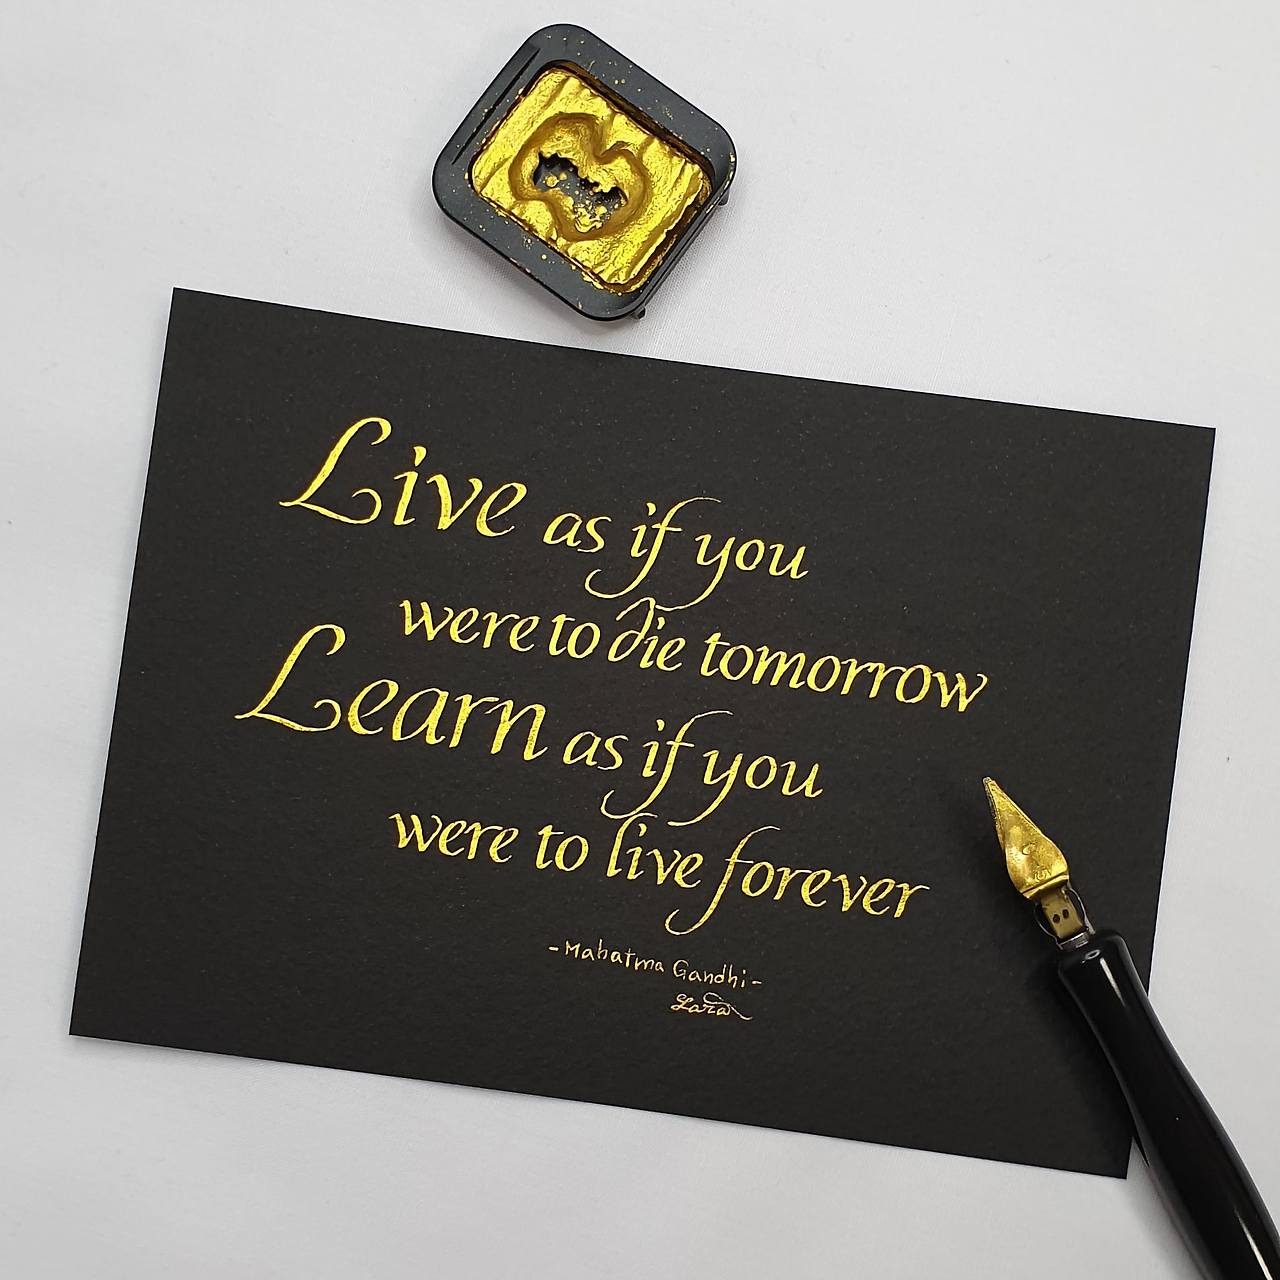 Live as if you
were to die tomorrow
Learn as if you
were to live forever
-Mahatma Gandhi-
Lara